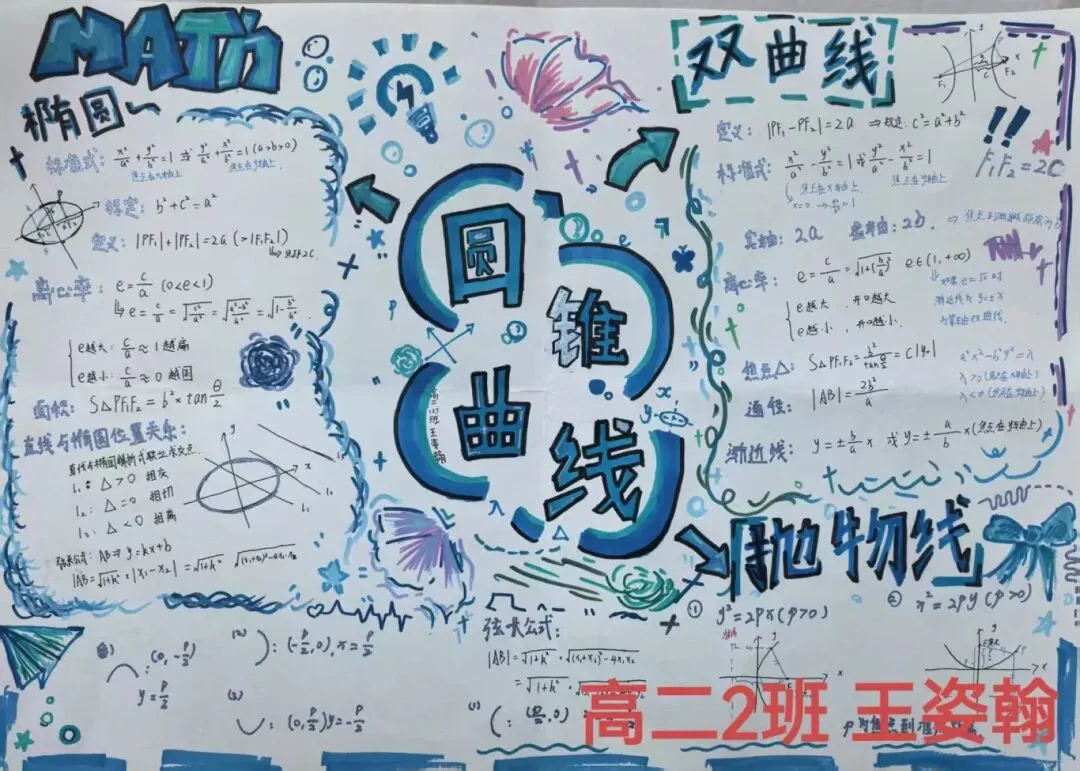 MATh
椭圆
标准式: x²/a² + y²/b² = 1 或 y²/a² + x²/b² = 1 (a>b>0)
焦点在x轴上 焦点在y轴上
b² + c² = a²
定义: |PF₁| + |PF₂| = 2a (>|F₁F₂|)
离心率: e = c/a (0<e<1)
e = c/a = √(c²/a²) = √((a²-b²)/a²) = √(1-b²/a²)
e越大: c/a ≈ 1 越扁
e越小: c/a ≈ 0 越圆
面积: S△PF₁F₂ = b² × tan θ/2
直线与椭圆位置关系:
l₁: △>0 相交
l₂: △=0 相切
l₃: △<0 相离
弦长公式: AB⇒ y=kx+b
|AB| = √(1+k²) · |x₁-x₂| = √(1+k²) · √((x₁+x₂)²-4x₁x₂)
圆
锥
曲
线
高二(2)班 王姿翰
双曲线
定义: |PF₁-PF₂| = 2a ⇒ 规定: c² = a²+b²
标准式: x²/a² - y²/b² = 1 或 y²/a² - x²/b² = 1
焦点在x轴上 焦点在y轴上
!!
F₁F₂ = 2C
实轴: 2a 虚轴: 2b
离心率: e = c/a = √(1+(b/a)²) e∈(1,+∞)
e越大, 开口越大
e越小, 开口越小
如果 e=√2 时
渐近线为 y=±x
焦点△: S△PF₁F₂ = b²/tan θ/2 = c|y₀|
a²x²-b²y²=λ
λ>0 (焦点在x轴上)
λ<0 (焦点在y轴上)
通径: |AB| = 2b²/a
渐近线: y = ± b/a x 或 y = ± a/b x (焦点在y轴上)
抛物线
① y² = 2px (p>0)
② x² = 2py (p>0)
弦长公式:
|AB| = √(1+k²) · √((x₁+x₂)²-4x₁x₂)
(0, -p/2)
y = p/2
(2) (-p/2, 0), x = p/2
(3) (0, p/2) y = -p/2
高二2班 王姿翰